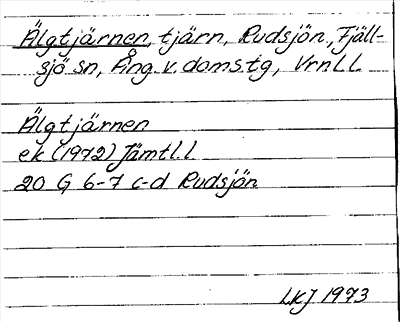 Älgtjärnen, tjärn, Rudsjön, Fjäll-
sjö sn, Ång. v. doms.tg, Vrnl l.
Älgtjärnen
ek (1972) Jämtl. l
20 G 6-7 c-d Rudsjön
LKJ 1973